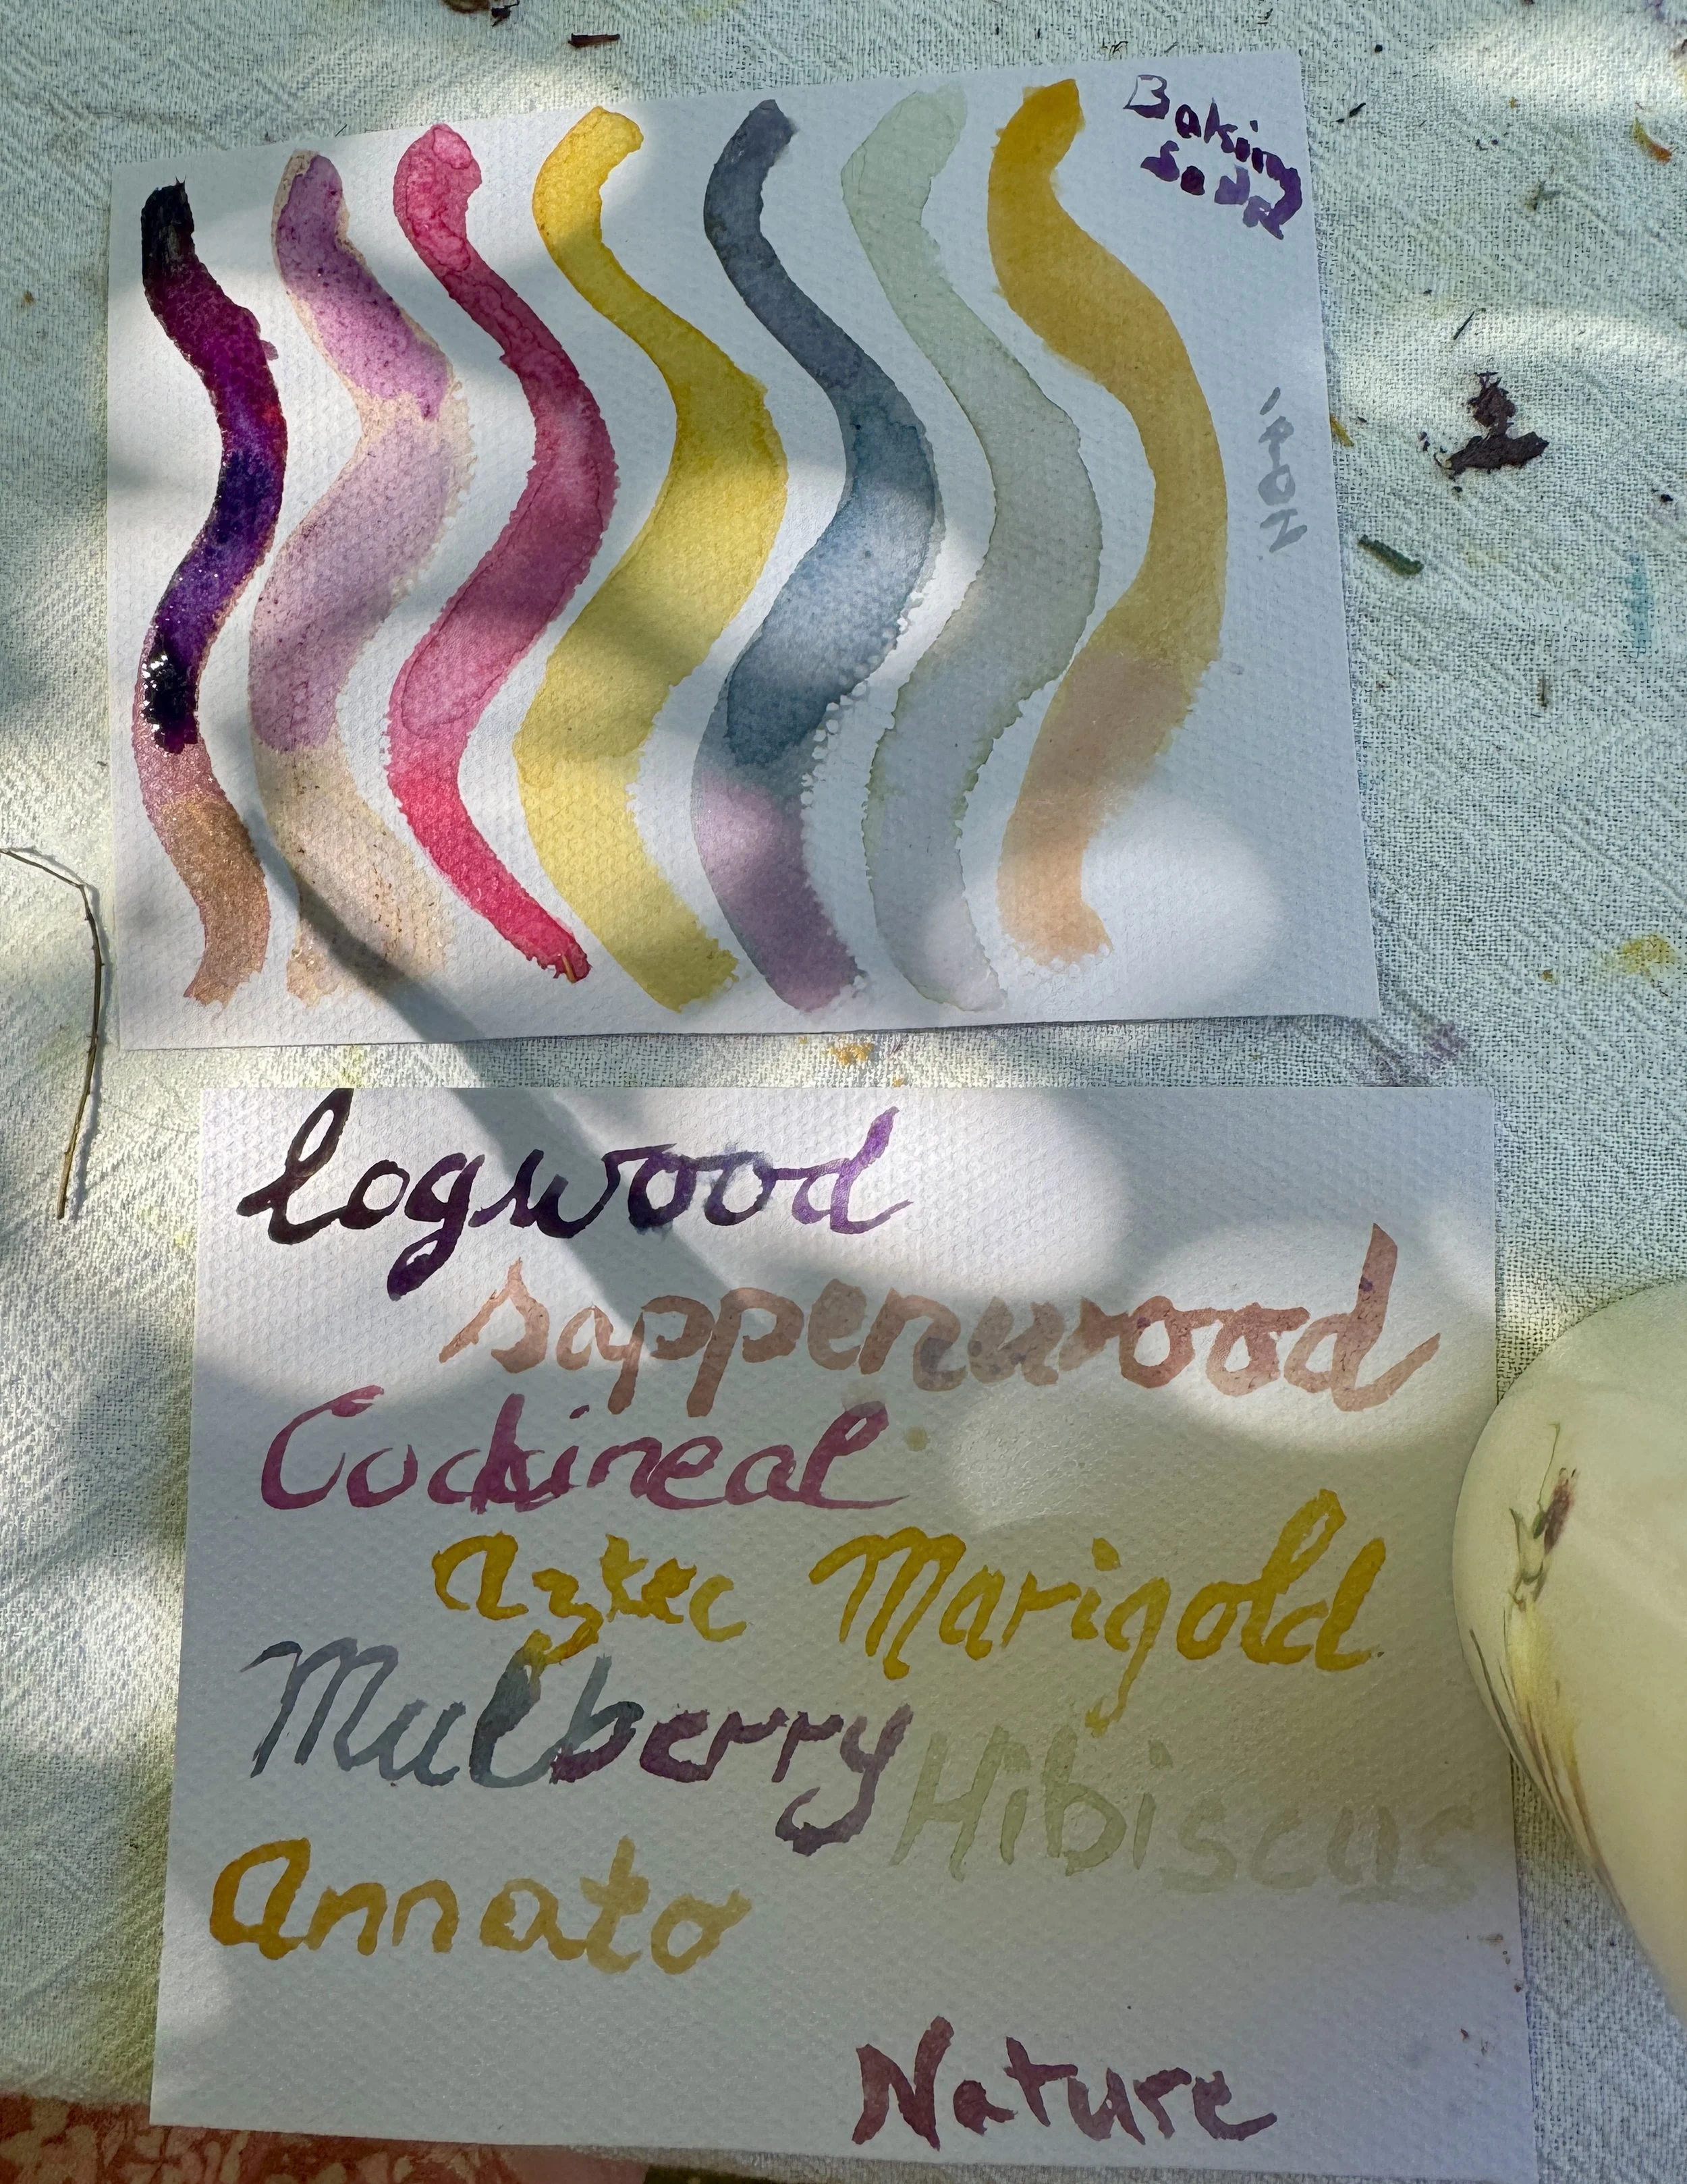 Baking
Soda
iRON
logwood
sappenwood
Cockineal
aztec Marigold
Mulberry
Hibiscus
Annato
Nature